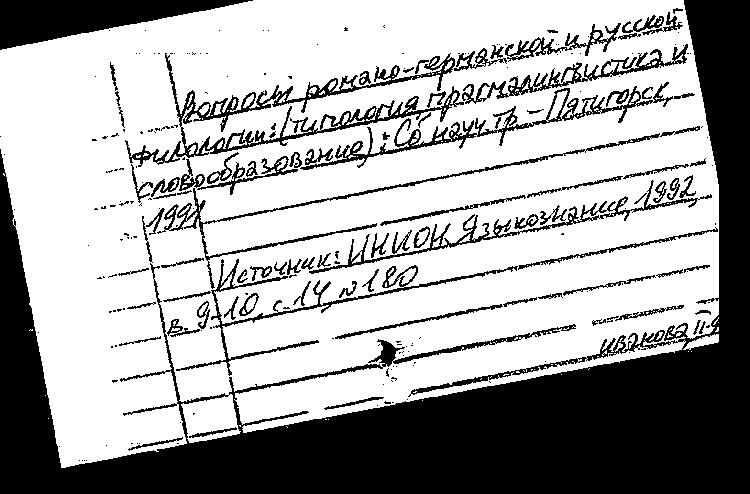 Вопросы романо-германской и русской
филологии: (типология прагмалингвистика и
словообразование): Сб науч. тр. - Пятигорск,
1991
Источник: ИНИОН, Языкознание, 1992,
в. 9-10, с. 14, № 180
иванова,